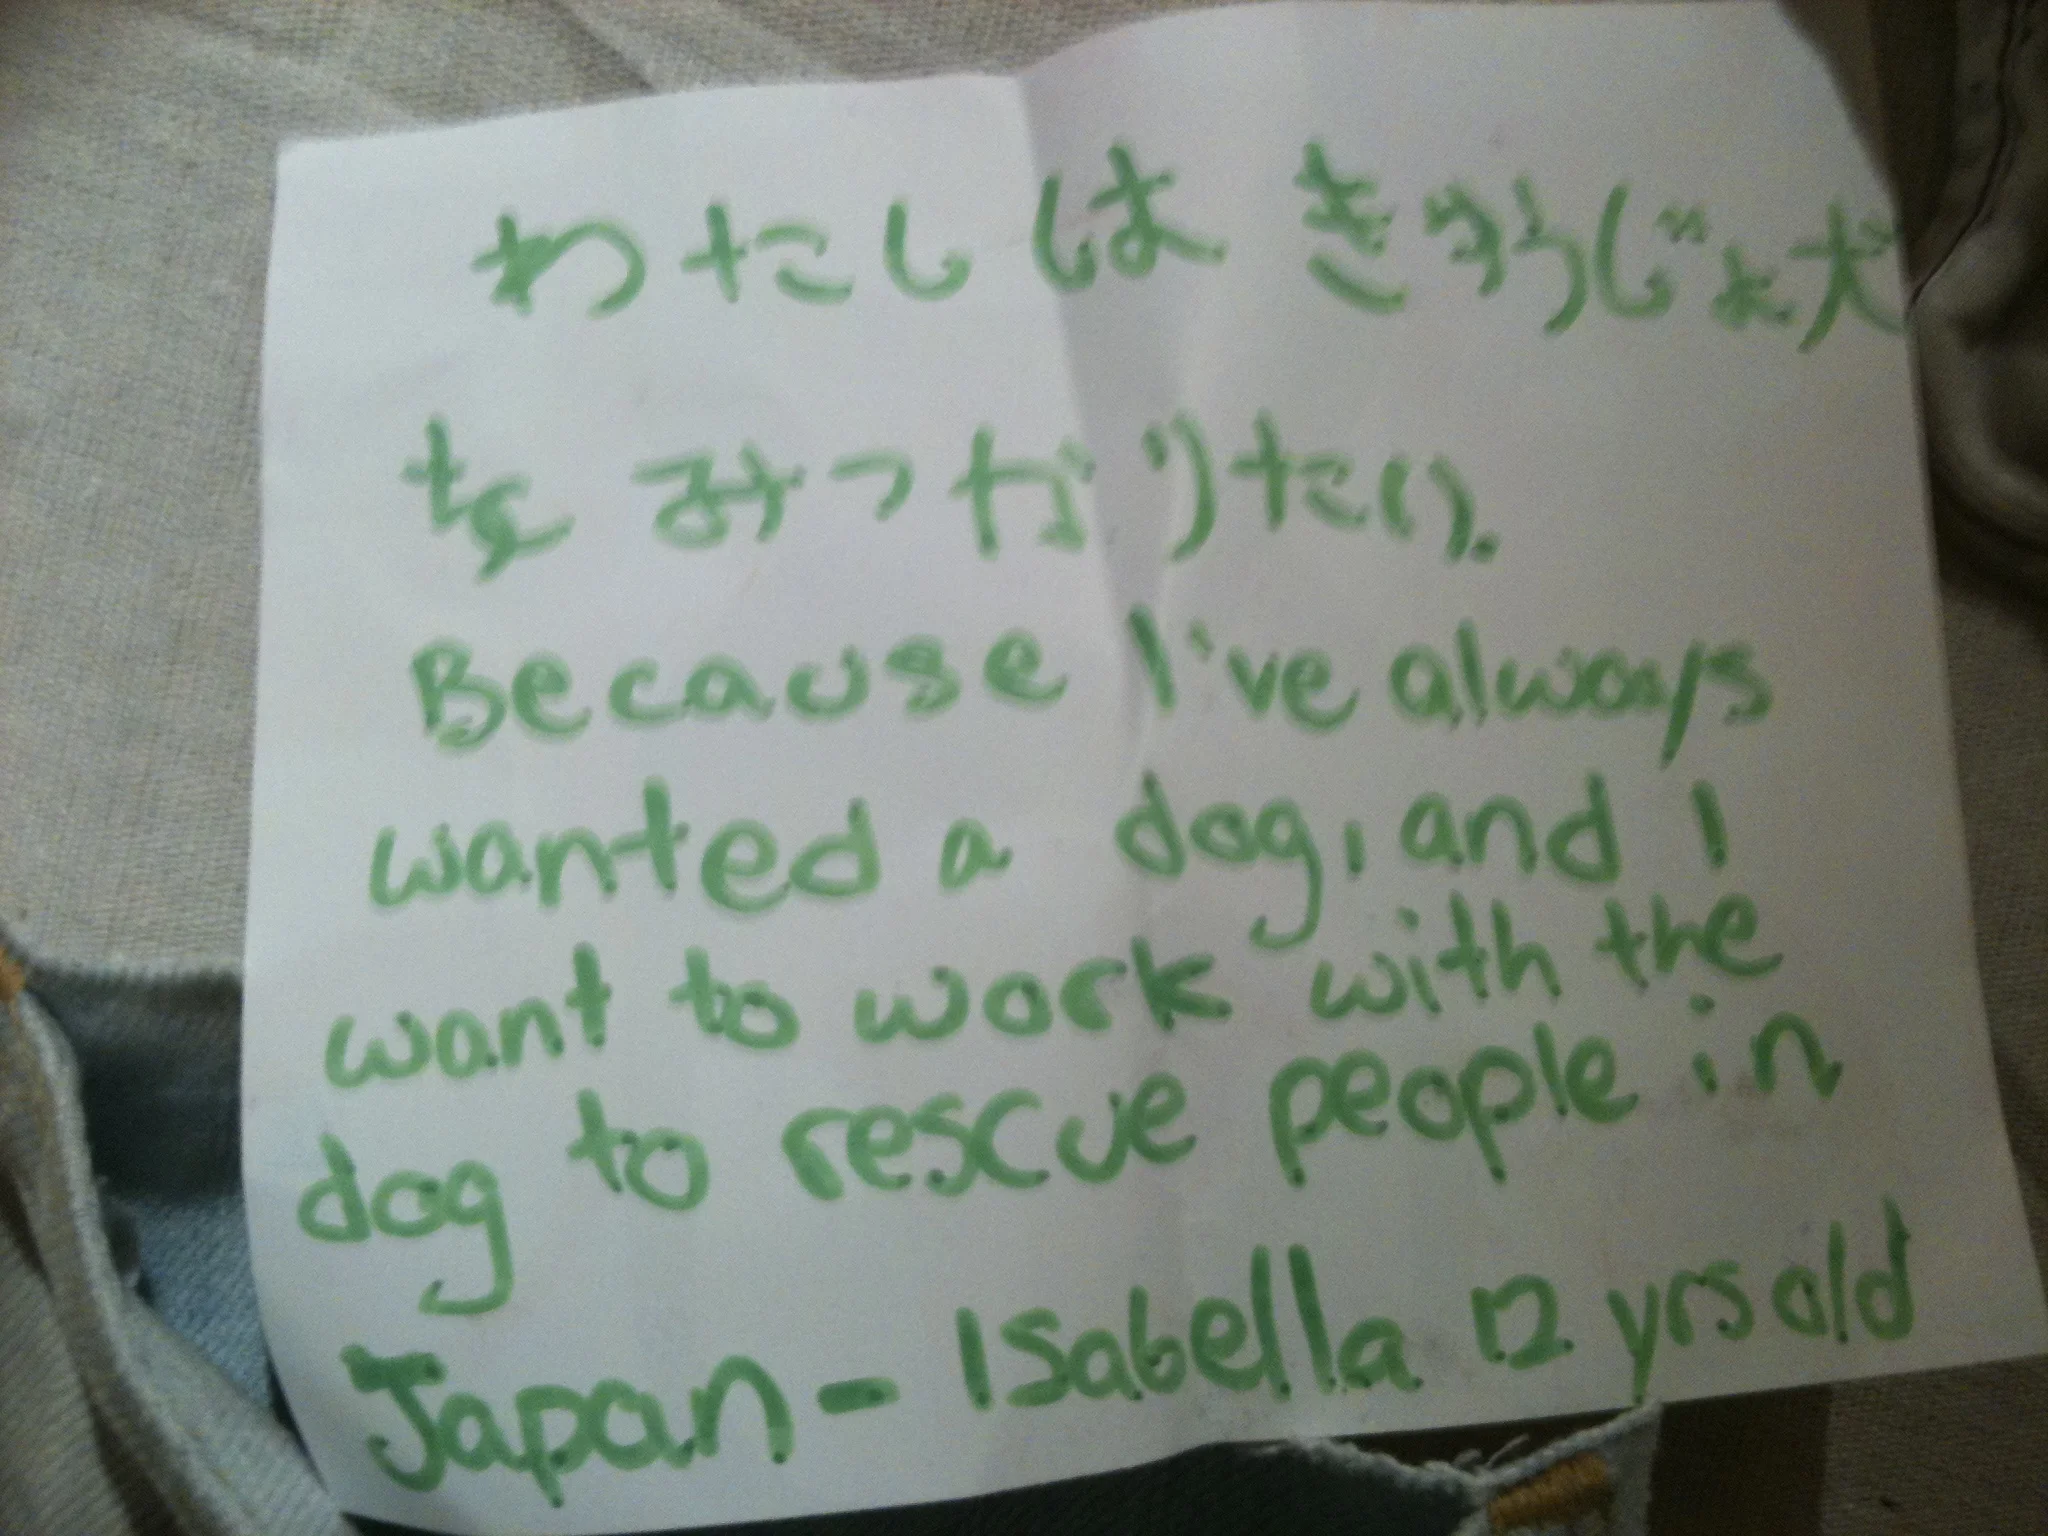 わたしは きゅうじょ犬
を みつがりたい.
Because I've always
wanted a dog, and I
want to work with the
dog to rescue people in
Japan - Isabella 12 yrs old